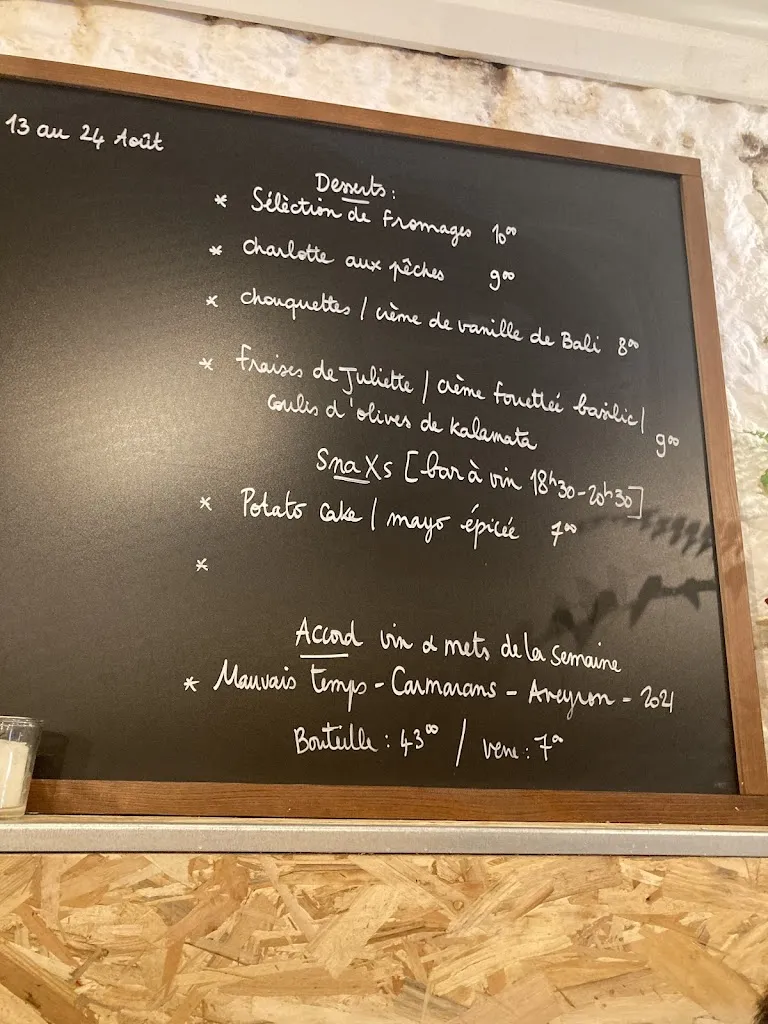 13 au 24 Août
Desserts :
* Sélèction de fromages 10⁰⁰
* charlotte aux pêches 9⁰⁰
* chouquettes / crème de vanille de Bali 8⁰⁰
* fraises de Juliette / crème fouettée basilic /
coulis d'olives de Kalamata 9⁰⁰
SnaXs [bar à vin 18h30-20h30]
* Potato cake / mayo épicée 7⁰⁰
*
Accord vin & mets de la semaine
* Mauvais temps - Carmarans - Aveyron - 2021
Bouteille : 43⁰⁰ / verre : 7⁰⁰